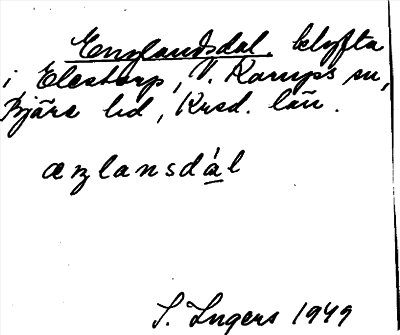 Englandsdal, klyfta
i Elestorp, V. Karups sn,
Bjäre hd, Krsd. län.
æŋlansdál
I. Ingers 1949